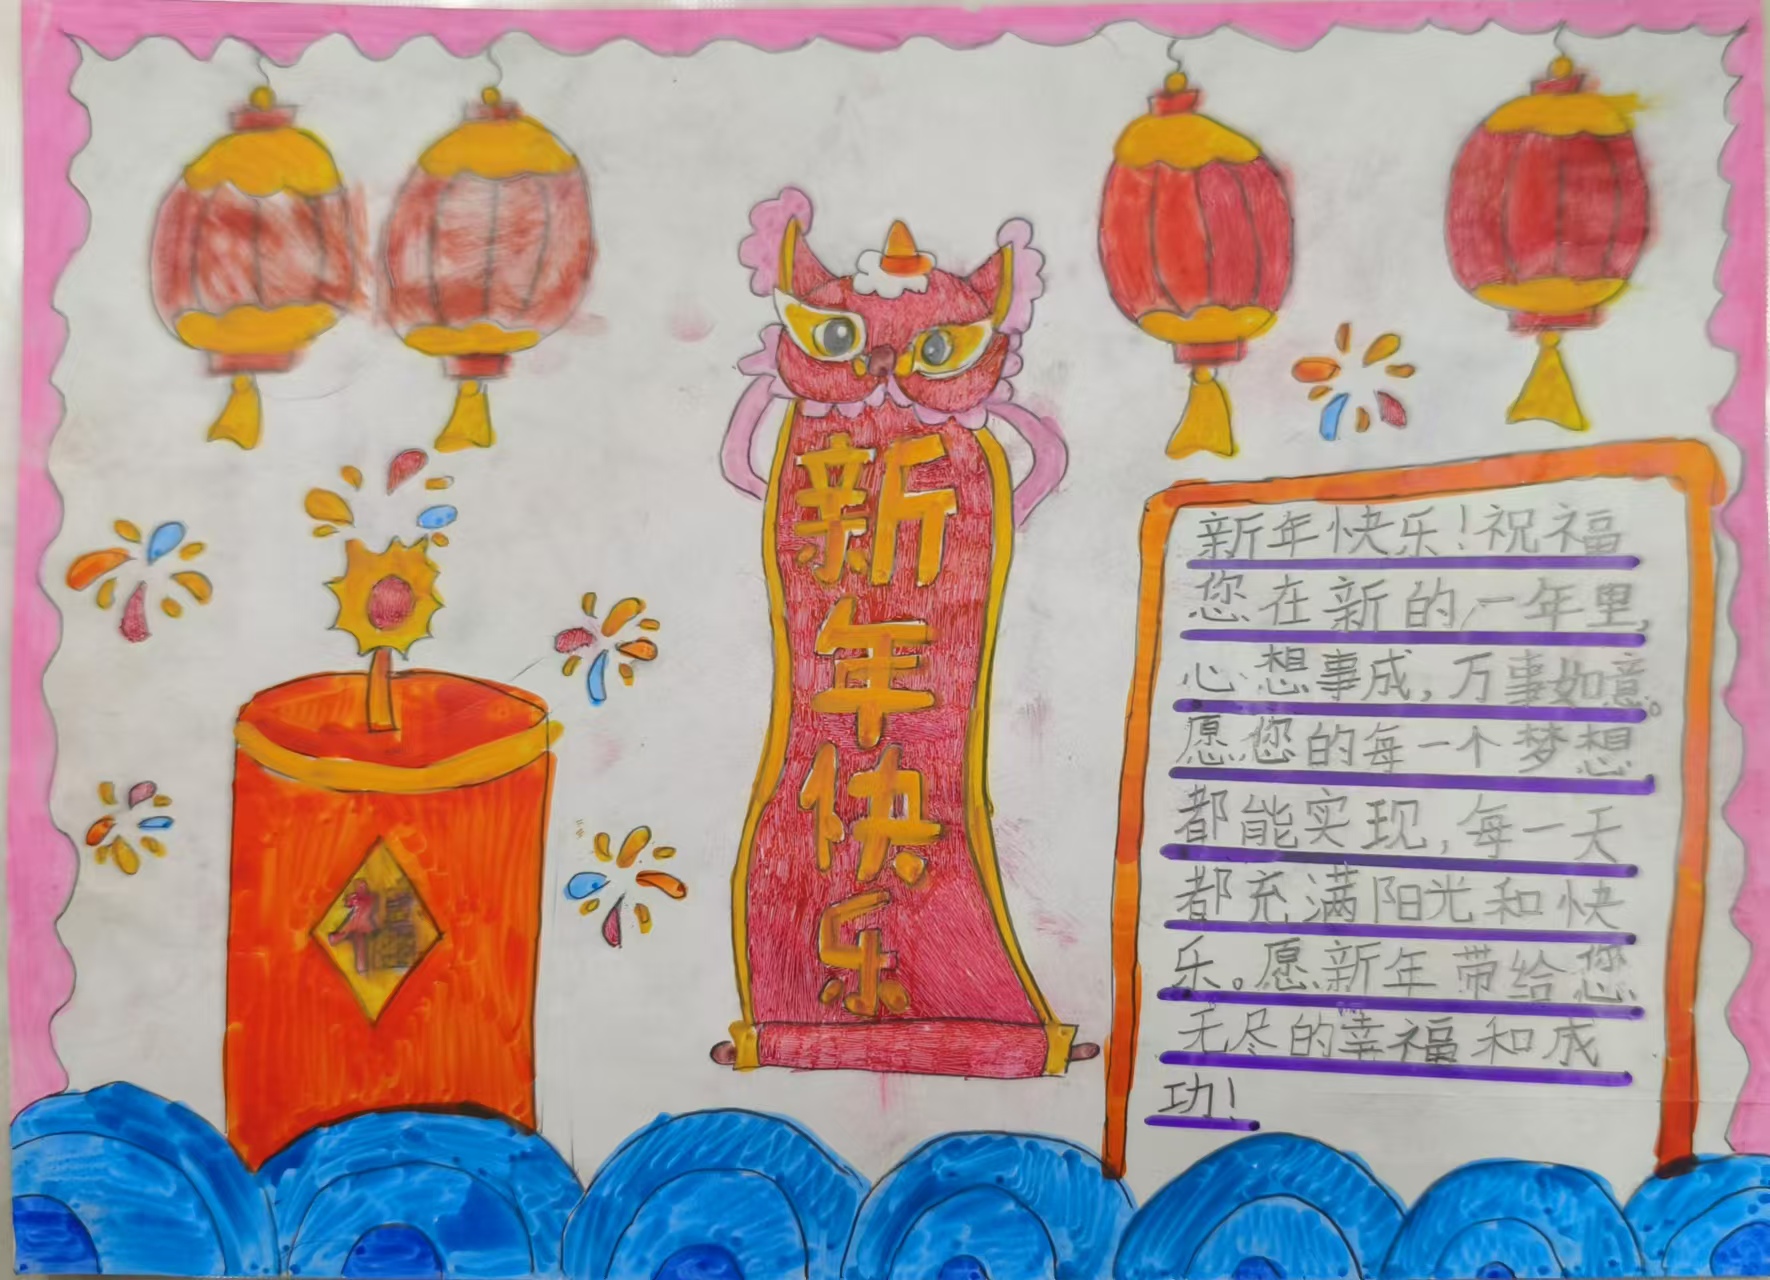 新年快乐
福
新年快乐！祝福
您在新的一年里，
心想事成，万事如意。
愿您的每一个梦想
都能实现，每一天
都充满阳光和快
乐。愿新年带给您
无尽的幸福和成
功！